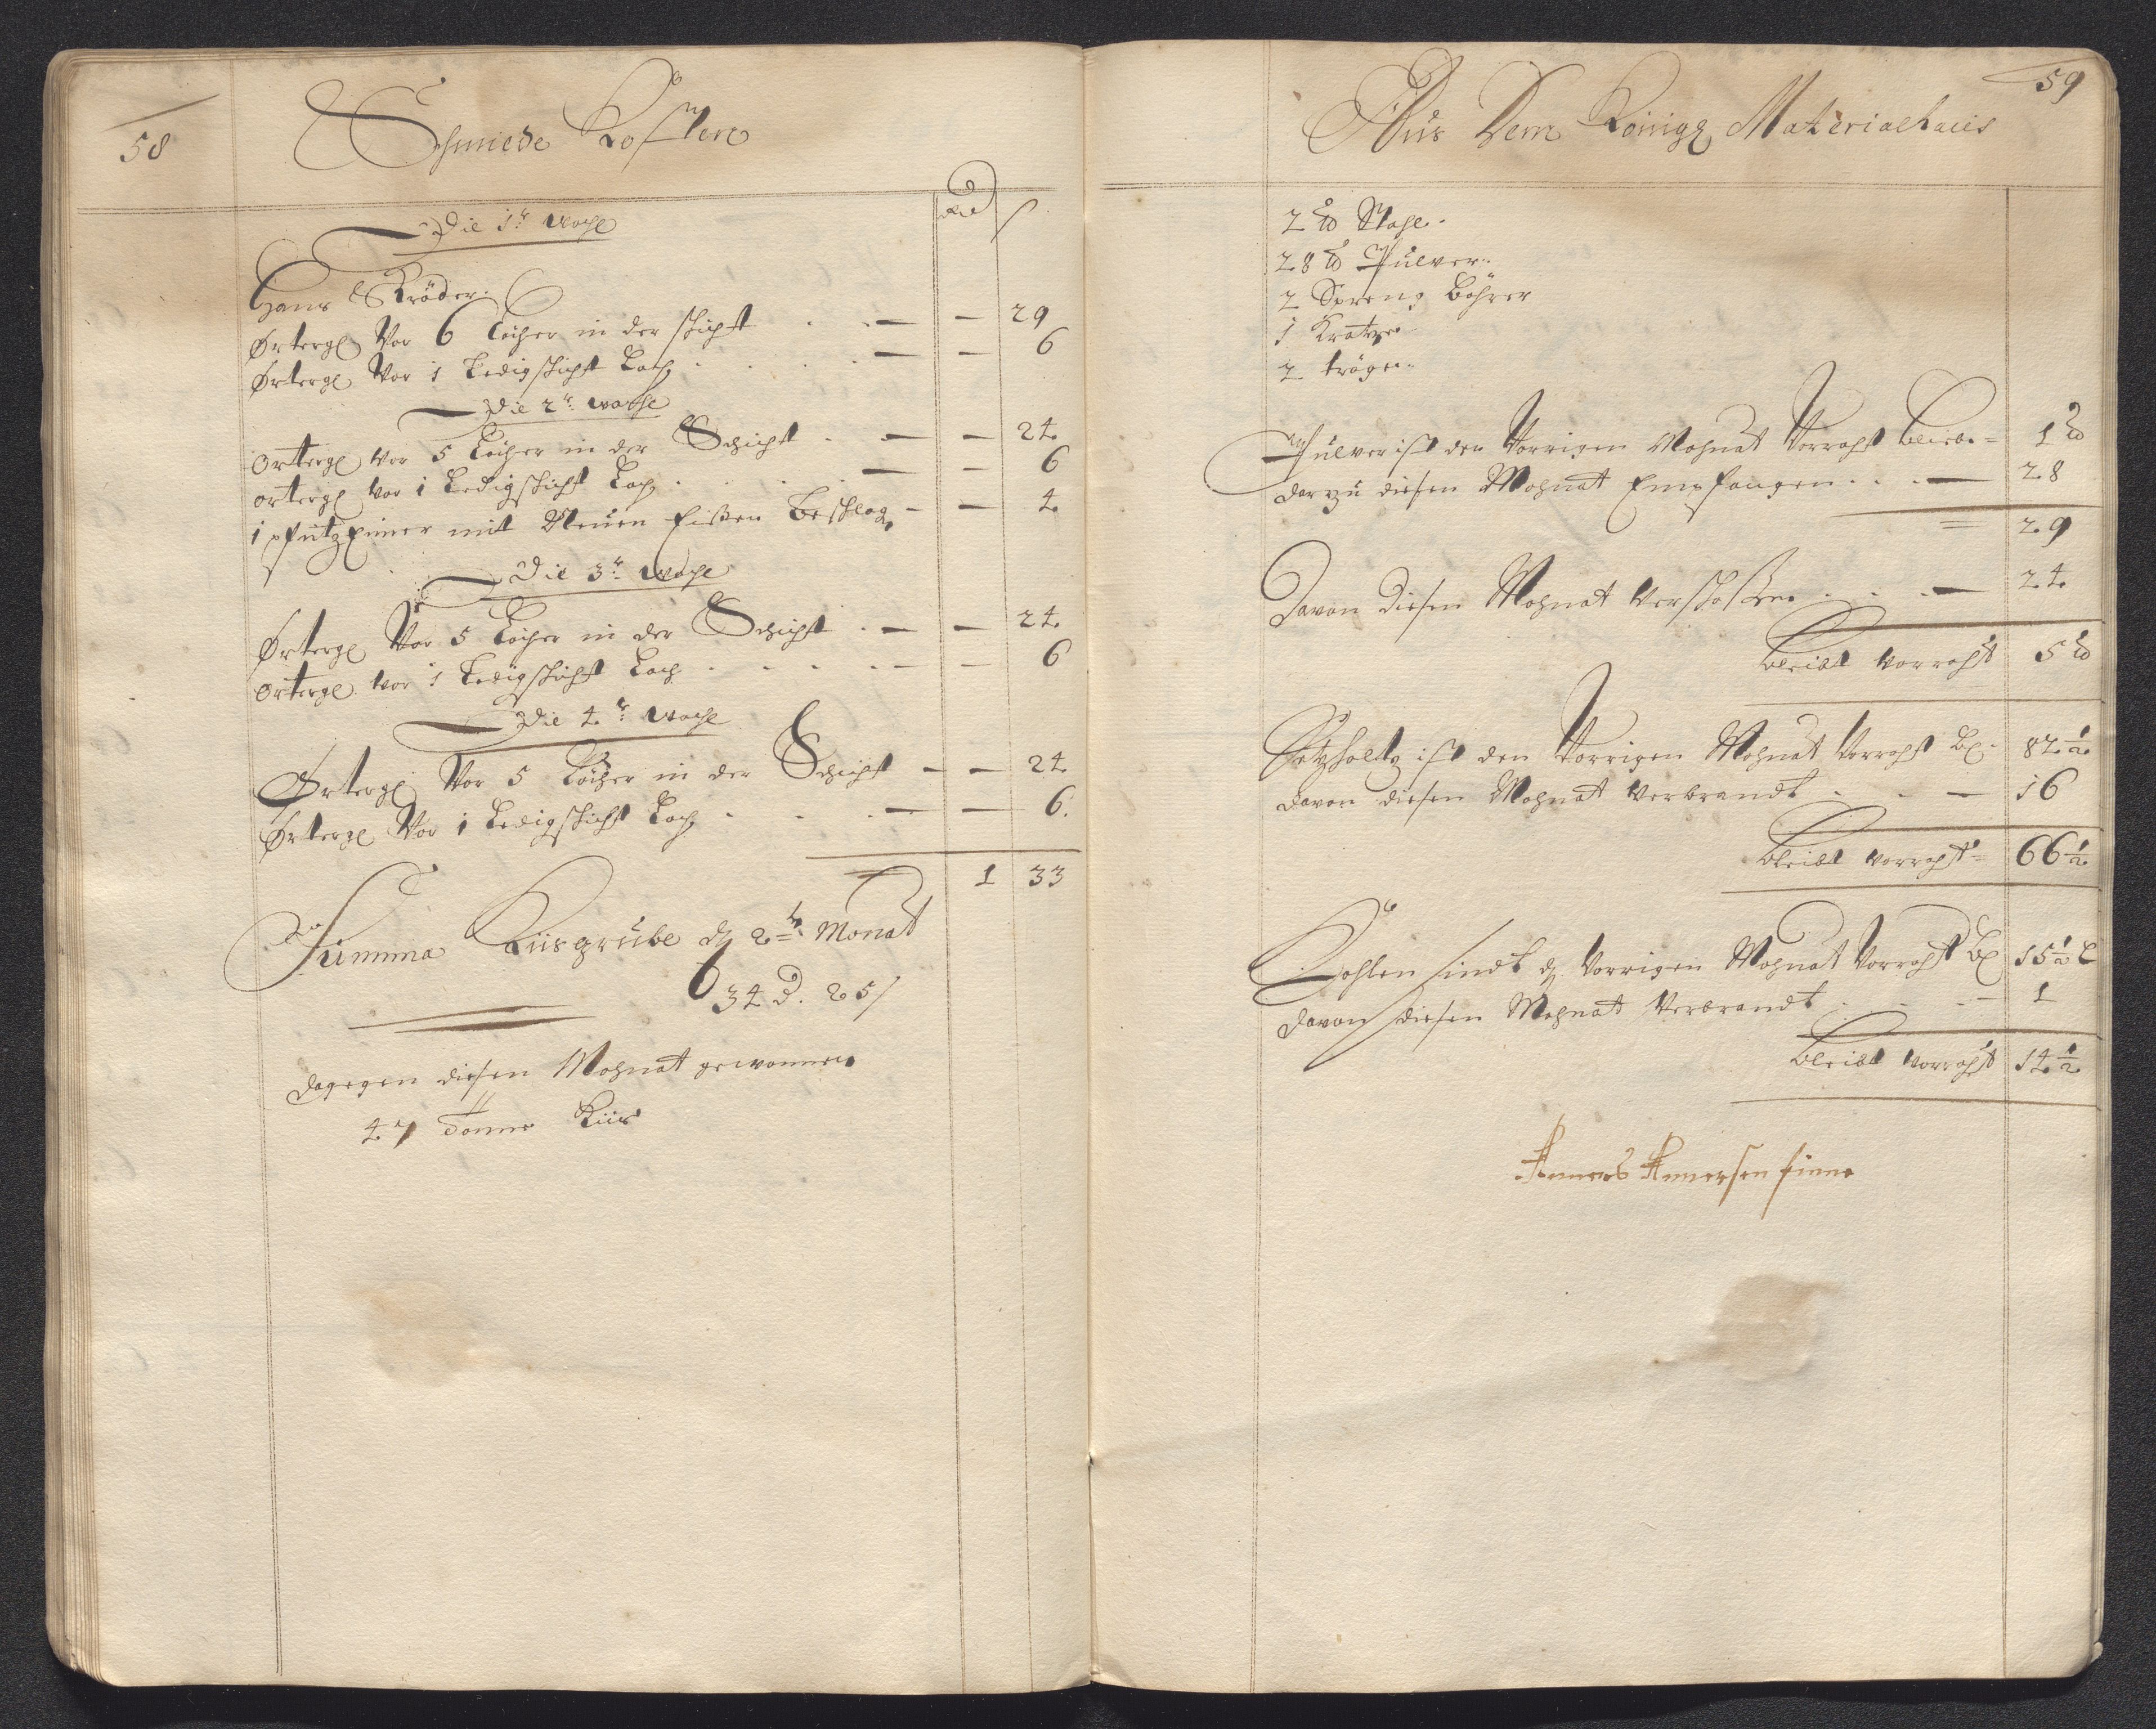 58
Schmiede Kosten
Rd ß
Die 1te Woche
Hans Ströder.
Örtergl Vor 6 Löcher in der Schicht . . — — 29
Örtergl Vor 1 Ledigschicht Loch . . . — — 6
Die 2te woche
Ortergl vor 5 Löcher in der Schicht . — — 24
ortergl vor 1 Ledigschicht Loch . . . — — 6
1 pfützEimer mit Neuen Eißen Beschlag — — 4
Die 3te Woche
Örtergl Vor 5 Löcher in der Schicht . — — 24
Ortergl vor 1 Ledigschicht Loch . . . . — — 6
Die 4te Woche
Örtergl Vor 5 Löcher in der Schicht — — 24
Örtergl Vor 1 Ledigschicht Loch . . . — — 6.
1 33
Summa Kiisgrube d 2ten Monat
34 d. 25 ß
dagegen diesen Mohnat gewonnen
47 Tonne Kiis
59
Aus Dem Königl Materialhaus
2 ℔ Stahl.
28 ℔ Pulver.
2 Spreng Bohrer
1 Kratze
2 tröge.
Pulver ist den Vorrigen Mohnat Vorraht bliebe = 1 ℔
darzu diesen Mohnat Empfangen . . . — 28
= 29
Davon diesen Mohnat Verschossen . . . — 24
bleibt vorraht 5 ℔
Setzholtz ist den Vorrigen Mohnat Vorraht bl. 82 1/2
davon diesen Mohnat Verbrandt . . — 16
bleibt vorraht = 66 1/2
Kohlen sindt d Vorrigen Mohnat Vorraht bl 15 1/2 L
davon diesen Mohnat Verbrandt . . . — 1
bleibt vorraht 14 1/2
Anners Annersen finne